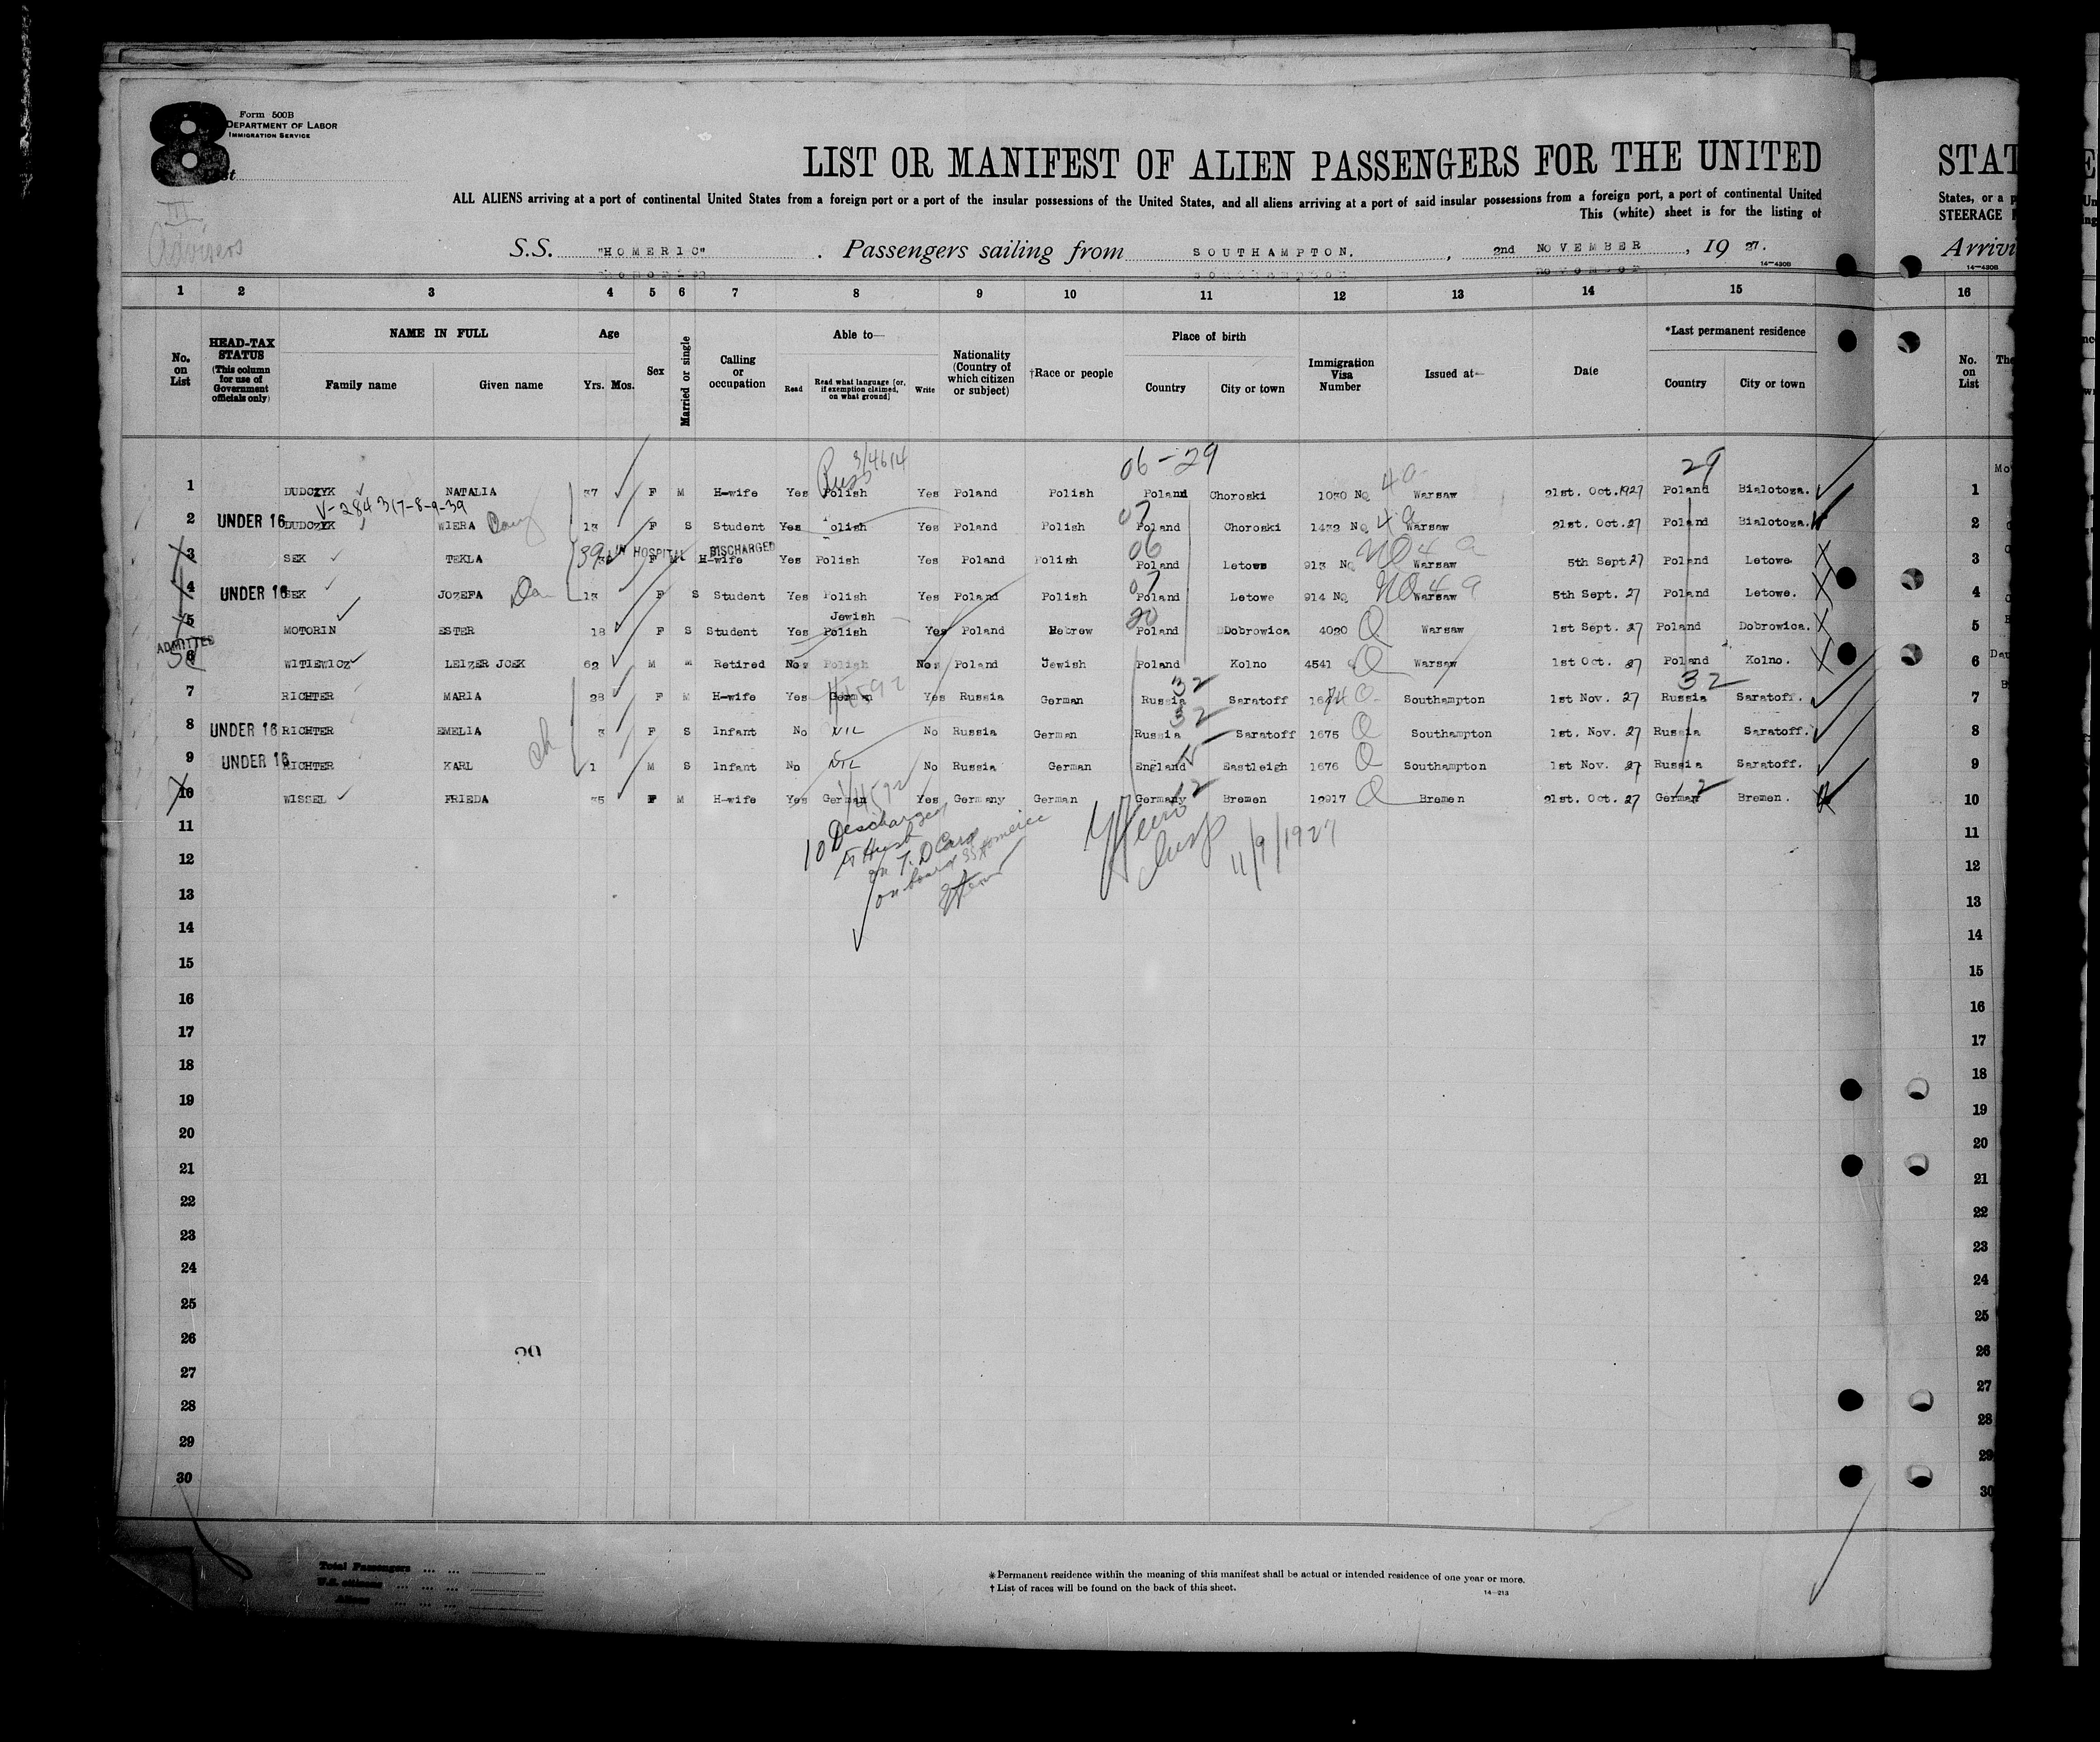 8
Form 500B
DEPARTMENT OF LABOR
IMMIGRATION SERVICE
LIST OR MANIFEST OF ALIEN PASSENGERS FOR THE UNITED
STAT
ALL ALIENS arriving at a port of continental United States from a foreign port or a port of the insular possessions of the United States, and all aliens arriving at a port of said insular possessions from a foreign port, a port of continental United
States, or a p
This (white) sheet is for the listing of
STEERAGE
S.S. "HOMERIC" . Passengers sailing from SOUTHAMPTON. , 2nd NOVEMBER , 19 27.
Arrivi
14—430B
14—430B
1 2 3 4 5 6 7 8 9 10 11 12 13 14 15 16
No. on List
HEAD-TAX STATUS (This column for use of Government officials only)
NAME IN FULL
Family name
Given name
Age
Yrs. Mos.
Sex
Married or single
Calling or occupation
Able to—
Read
Read what language [or, if exemption claimed, on what ground]
Write
Nationality (Country of which citizen or subject)
†Race or people
Place of birth
Country
City or town
Immigration Visa Number
Issued at—
Date
*Last permanent residence
Country
City or town
No. on List
The
Russ 3/4614 06-29 29
1 DUDCZYK NATALIA 37 F M H-wife Yes Polish Yes Poland Polish Poland Choroski 1030 NQ 4a Warsaw 21st. Oct.1927 Poland Bialotoza. 1
V-284317-8-9-39
2 UNDER 16 DUDCZYK WIERA 13 F S Student Yes Polish Yes Poland Polish 07 Poland Choroski 1432 NQ 4a Warsaw 21st. Oct.27 Poland Bialotoza. 2
3 SEK TEKLA 39 IN HOSPITAL DISCHARGED F M H-wife Yes Polish Yes Poland Polish 06 Poland Letowe 913 NQ NQ 4 a Warsaw 5th Sept 27 Poland Letowe. 3
4 UNDER 16 SEK JOZEFA Da 13 F S Student Yes Polish Yes Poland Polish 07 Poland Letowe 914 NQ NQ 4 a Warsaw 5th Sept. 27 Poland Letowe. 4
5 MOTORIN ESTER 18 F S Student Yes Jewish Polish Yes Poland Hebrew 20 Poland Dobrowica 4020 Q Warsaw 1st Sept. 27 Poland Dobrowica. 5
ADMITTED
6 WITIEWICZ LEIZER JOEK 62 M M Retired No Polish No Poland Jewish Poland Kolno 4541 Q Warsaw 1st Oct. 27 Poland Kolno. 6
7 RICHTER MARIA 28 F M H-wife Yes German Yes Russia German 32 Russia Saratoff 1674 Q Southampton 1st Nov. 27 32 Russia Saratoff. 7
8 UNDER 16 RICHTER EMELIA 3 F S Infant No NIL No Russia German 32 Russia Saratoff 1675 Q Southampton 1st. Nov. 27 Russia Saratoff. 8
9 UNDER 16 RICHTER KARL ch 1 M S Infant No NIL No Russia German England Eastleigh 1676 Q Southampton 1st Nov. 27 Russia Saratoff. 9
10 WISSEL FRIEDA 35 F M H-wife Yes German Yes Germany German 12 Germany Bremen 12917 Q Bremen 21st. Oct. 27 12 German Bremen. 10
11 11
10 Discharged
to Husb
on board SS Homeric
Insp 11/9/1927
12 12
13 13
14 14
15 15
16 16
17 17
18 18
19 19
20 20
21 21
22 22
23 23
24 24
25 25
26 26
27 27
28 28
29 29
30 30
Total Passengers ... ...
U.S. citizens ... ... ...
Aliens ... ... ...
* Permanent residence within the meaning of this manifest shall be actual or intended residence of one year or more.
† List of races will be found on the back of this sheet.
14—213